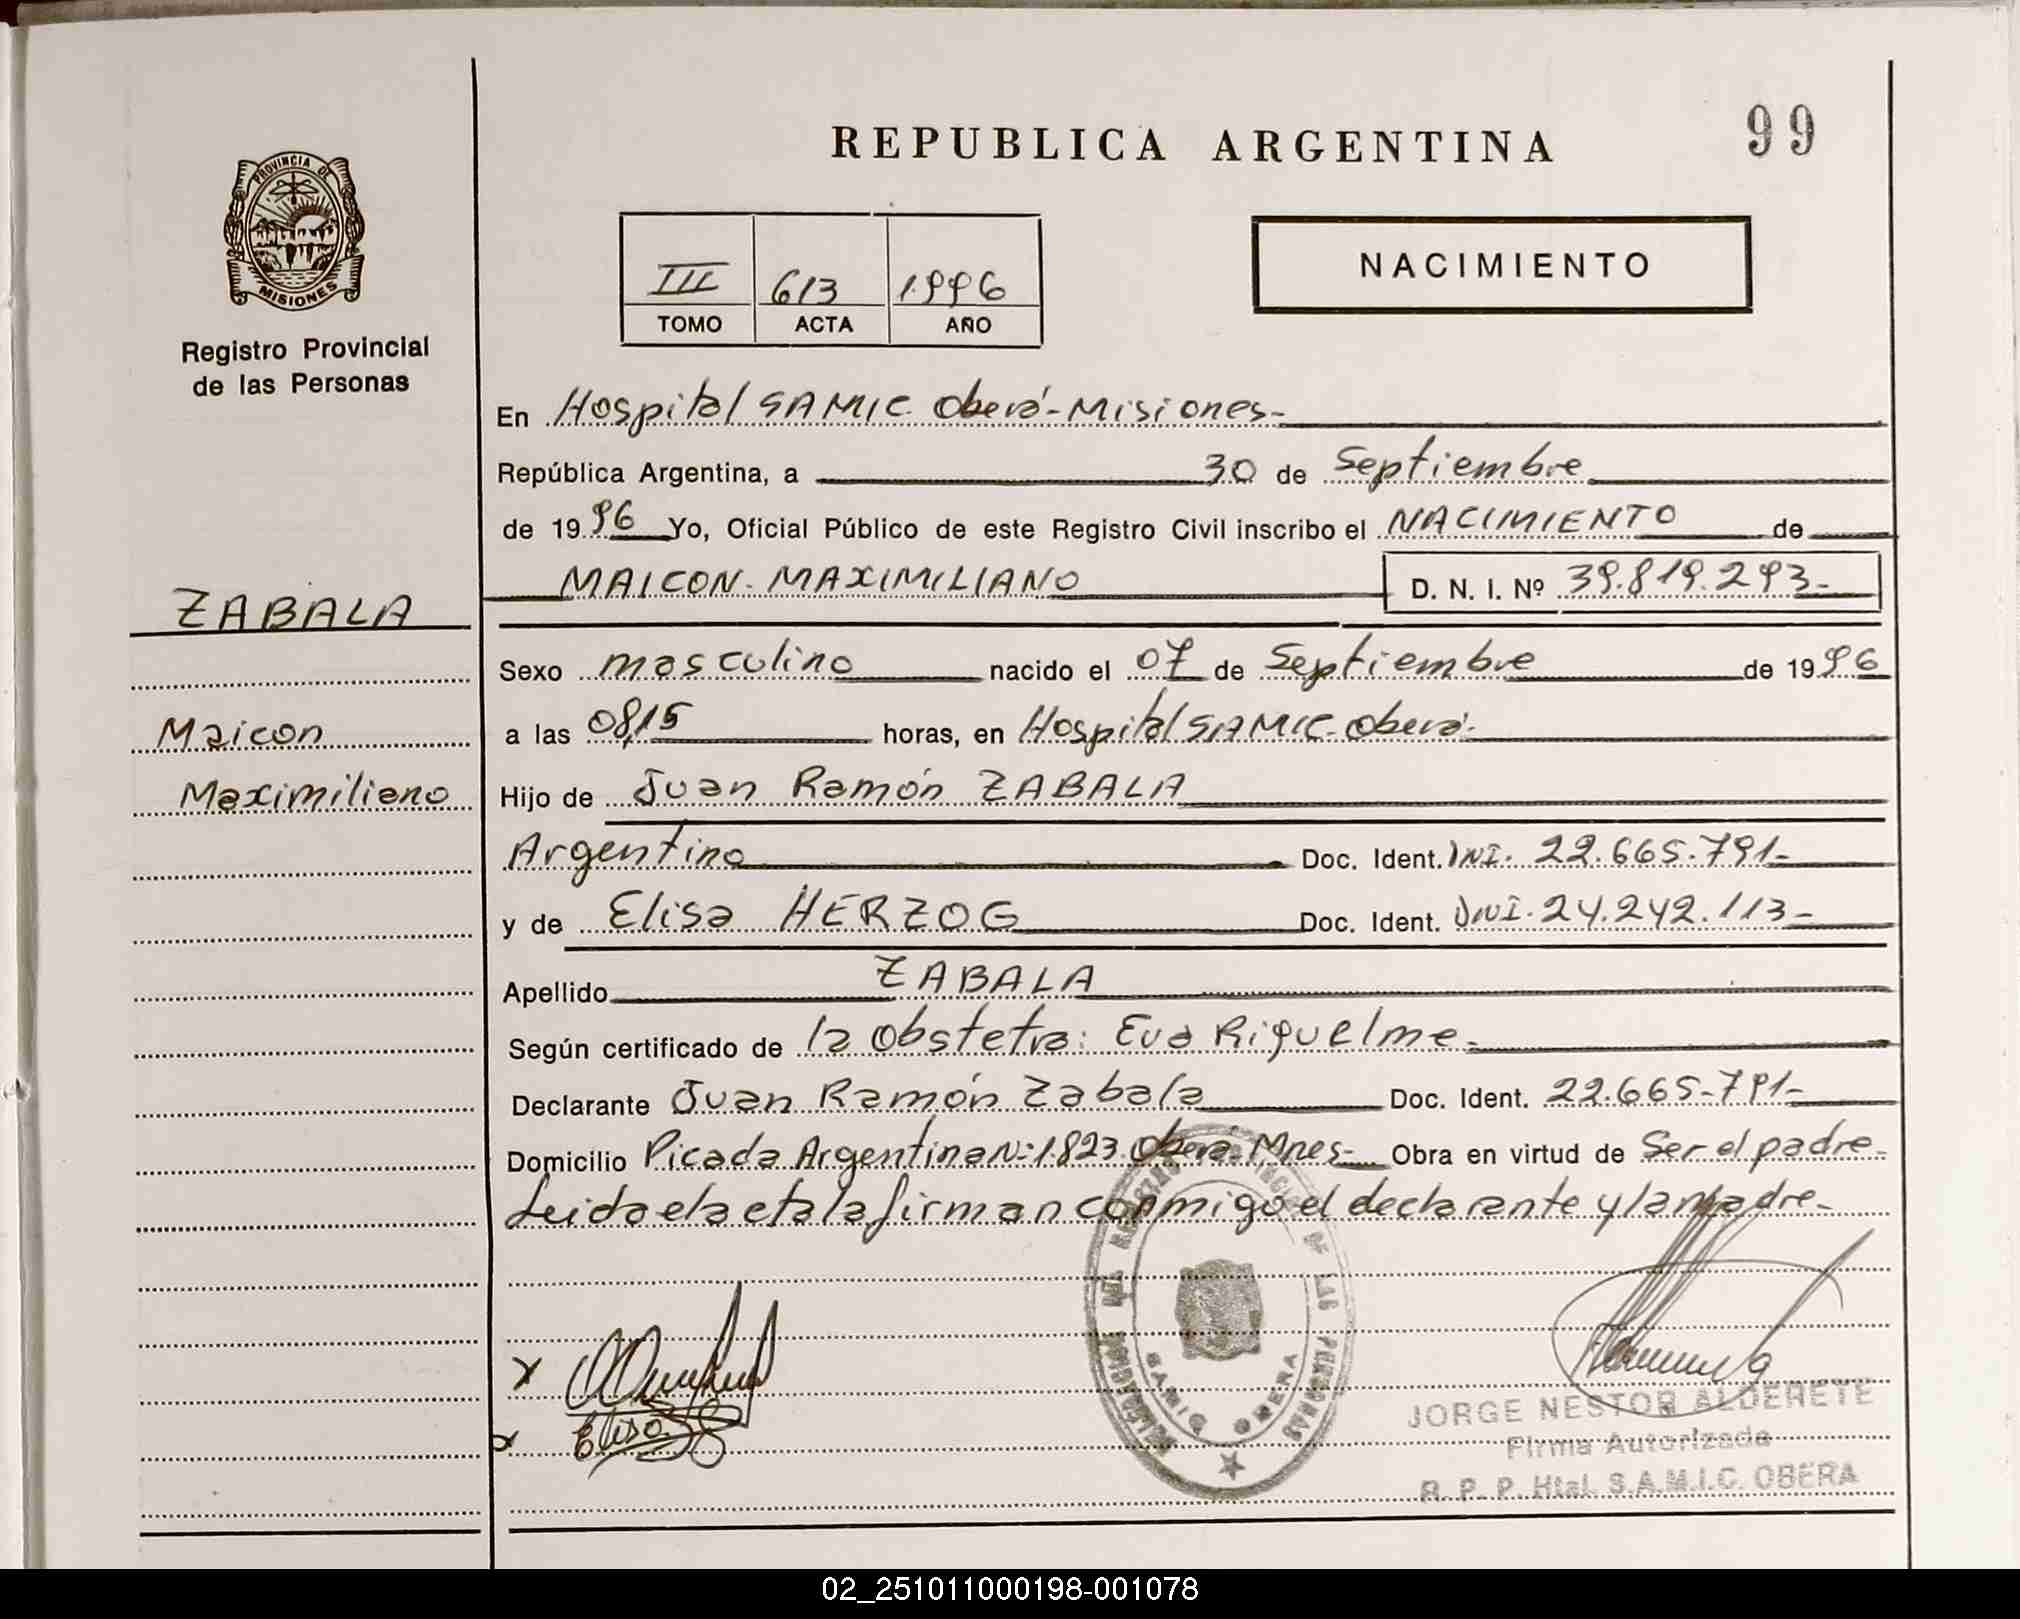 REPUBLICA ARGENTINA
99
PROVINCIA DE
MISIONES
Registro Provincial
de las Personas
III 613 1.996
TOMO ACTA AÑO
NACIMIENTO
En Hospital SAMIC. Oberá-Misiones-
República Argentina, a 30 de Septiembre
de 1996 Yo, Oficial Público de este Registro Civil inscribo el NACIMIENTO de
MAICON. MAXIMILIANO D. N. I. Nº 39.819.293-
ZABALA
Maicon
Maximiliano
Sexo masculino nacido el 07 de Septiembre de 1996
a las 08,15 horas, en Hospital SAMIC- Oberá.
Hijo de Juan Ramón ZABALA
Argentino Doc. Ident. DNI. 22.665.791-
y de Elisa HERZOG Doc. Ident. DNI. 24.242.113-
Apellido ZABALA
Según certificado de la Obstetra: Eva Riquelme-
Declarante Juan Ramón Zabala Doc. Ident. 22.665-791-
Domicilio Picada Argentina N: 1.823 Oberá-Mnes- Obra en virtud de Ser el padre-
Leida el acta la firman conmigo el declarante y la Madre-
SAMIC OBERA
DE LAS PERSONAS
x
x Elisa
JORGE NESTOR ALDERETE
Firma Autorizada
R. P. P. Htal. S.A.M.I.C. OBERA
02_251011000198-001078